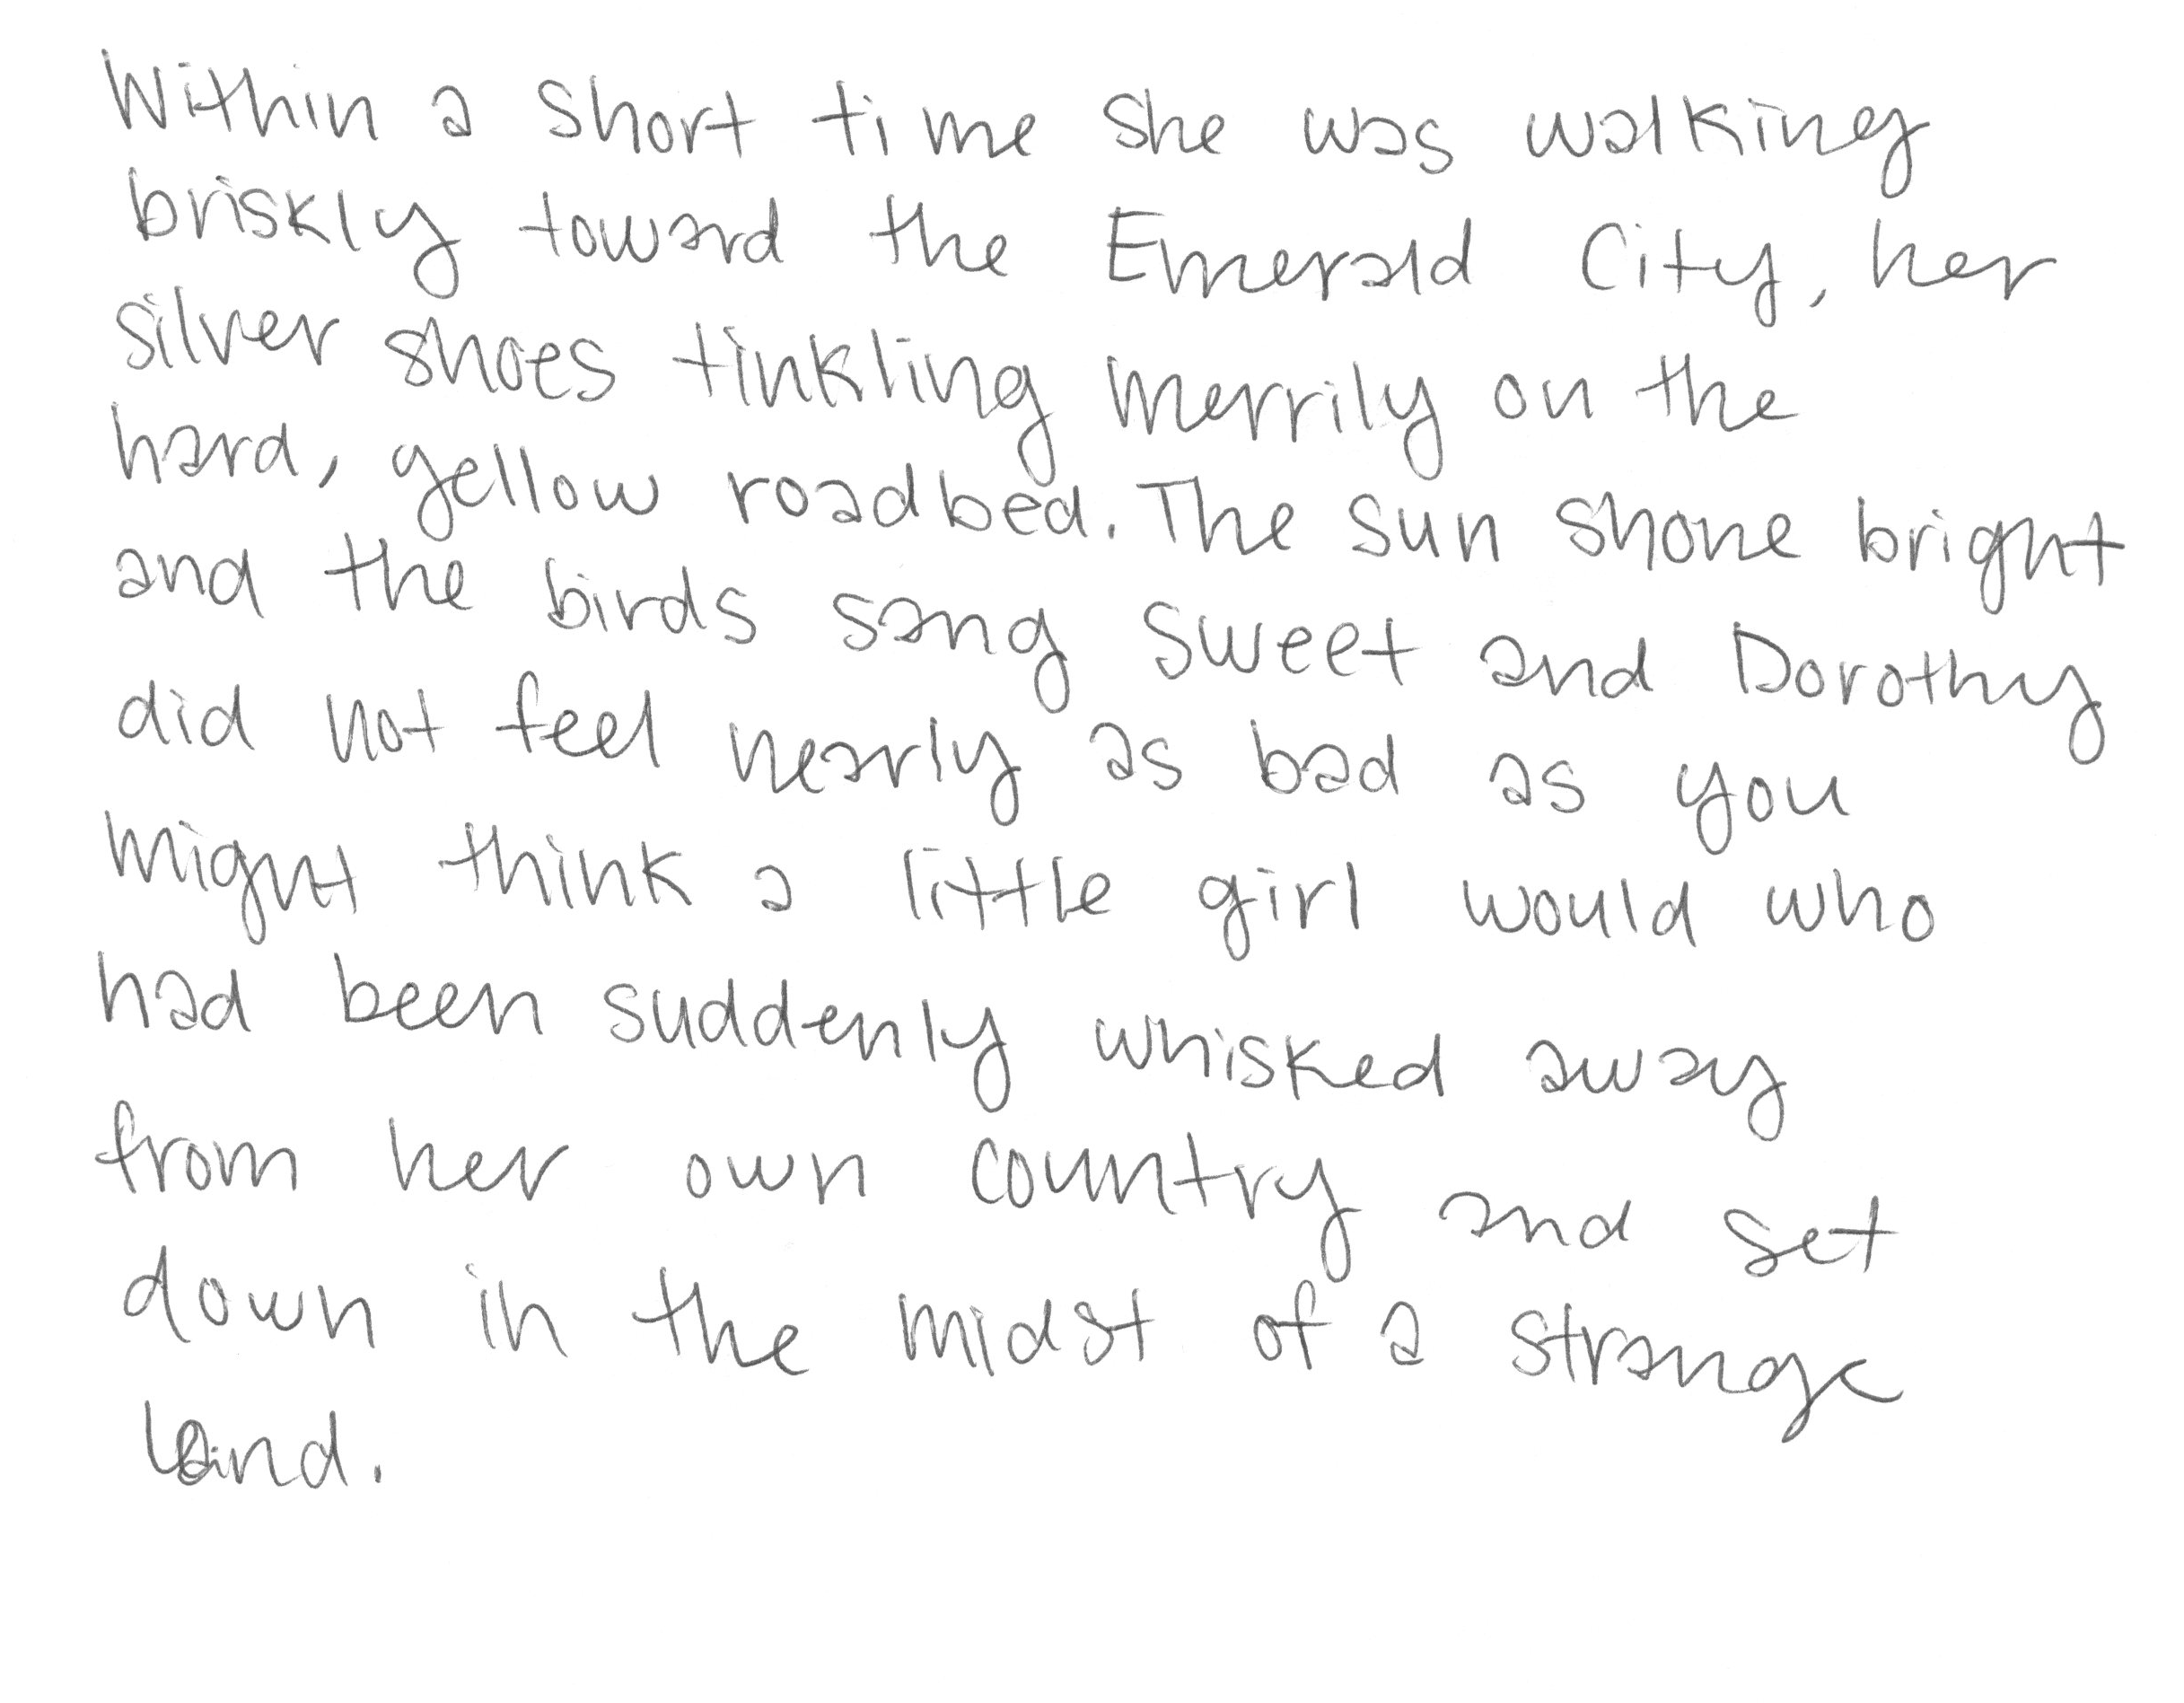 Within a short time she was walking
briskly toward the Emerald City, her
silver shoes tinkling merrily on the
hard, yellow roadbed. The sun shone bright
and the birds sang sweet and Dorothy
did not feel nearly as bad as you
might think a little girl would who
had been suddenly whisked away
from her own country and set
down in the midst of a strange
land.